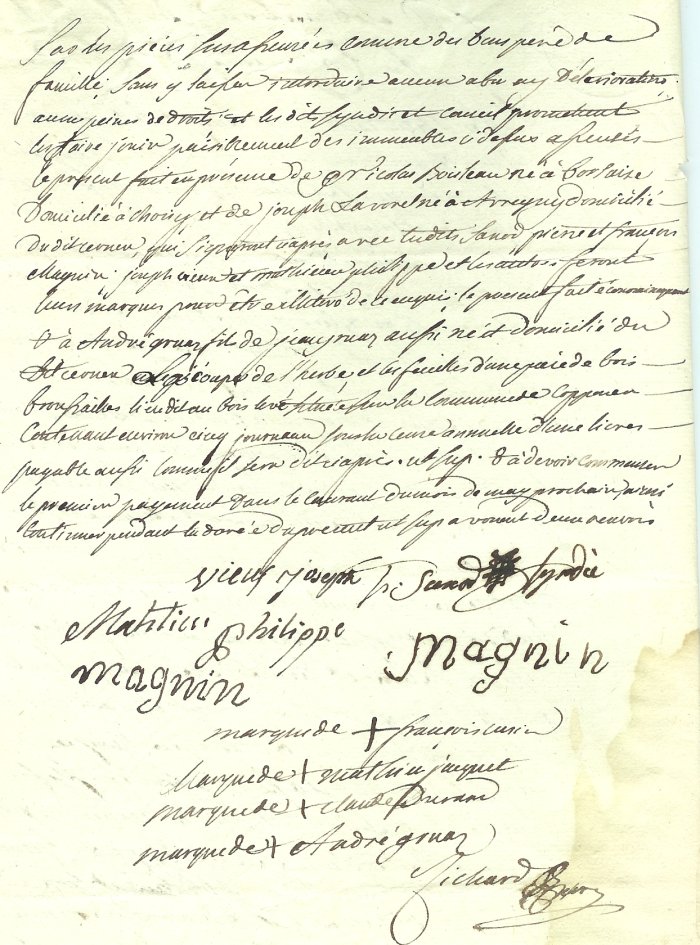 Sur les pièces sus asscensées comme des bons père de
famille sans y laisser introduire aucun abu ny déterioration
aux peines de droits et les dits syndic et conseil promettent
les faire jouir paisiblement des immeubles cidessus assensés
le present fait en présence de Nicolas Boisleau né à
Domicilié à choisy et de joseph Lavorel né à Arregny domicilié
Du dit cernex, qui signeront ciaprès avec les dits Sanod pierre et françois
Magnin joseph vieux et mathieu philippe et les autres feront
leurs marques pour être illiteré de ce enquis le présent fait
& à André gruaz fils de jean gruaz aussi né et domicilié du
dit cernex la coupe de l'herbe et les feuilles d'une piece de bois
brousailles lieudit au bois située sur la Commune de copponex
Contenant environ cinq journaux sous la cense annuelle d'une livre
payable aussi comme il sera dit ciaprès ut sup. & à devoir commencer
le premier payement dans le courant du mois de may prochain ainsi
continuer pendant la durée du présent ut sup avonent deux
vieux joseph p: Sanod syndic
Mathieu philippe
magnin magnin
marque de + francois
Marque de + mathieu jacquet
marque de + claude Durand
marque de + André gruaz
Richard